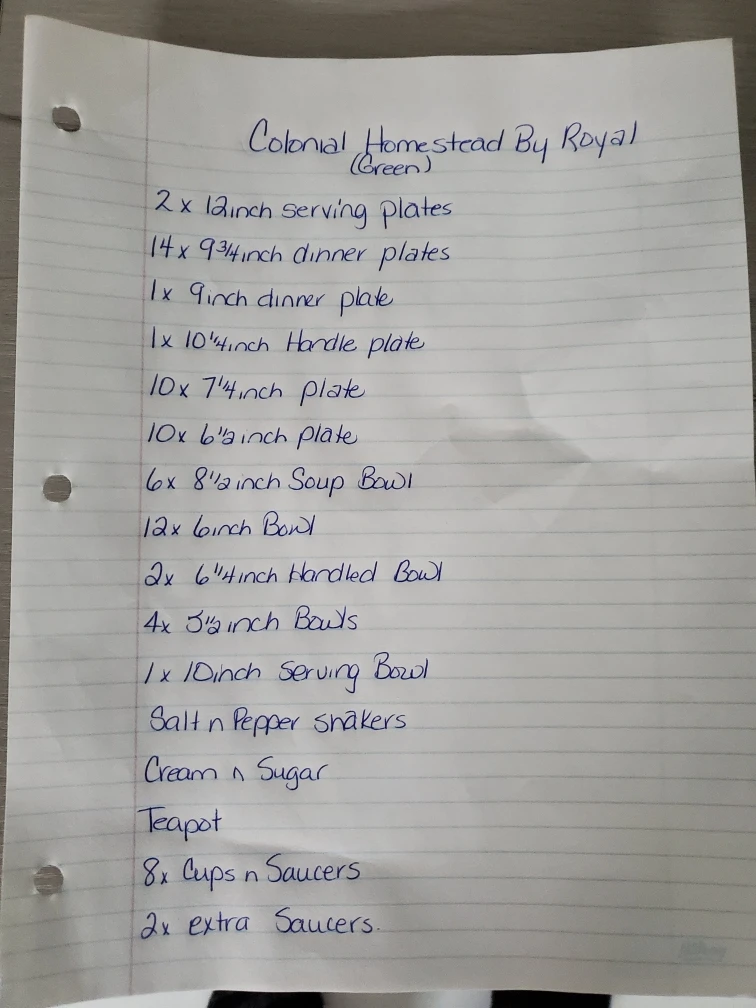 Colonial Homestead By Royal
(Green)
2 x 12inch serving plates
14x 9 3/4inch dinner plates
1x 9inch dinner plate
1x 10 1/4inch Handle plate
10x 7 1/4inch plate
10x 6 1/2inch plate
6x 8 1/2inch Soup Bowl
12x 6inch Bowl
2x 6 1/4inch Handled Bowl
4x 5 1/2inch Bowls
1x 10inch Serving Bowl
Salt n Pepper shakers
Cream n Sugar
Teapot
8x Cups n Saucers
2x extra Saucers.